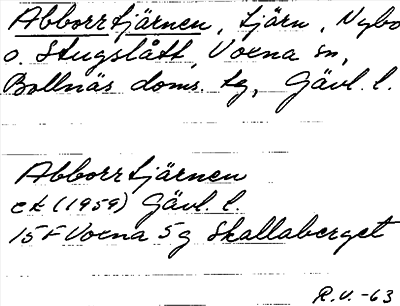 Abborrtjärnen, tjärn, Nybo
o. Stugslått, Voxna sn,
Bollnäs doms. tg, Gävl. l.
Abborrtjärnen
ek (1959) Gävl. l.
15F Voxna 5g Skallaberget
R.V. -63